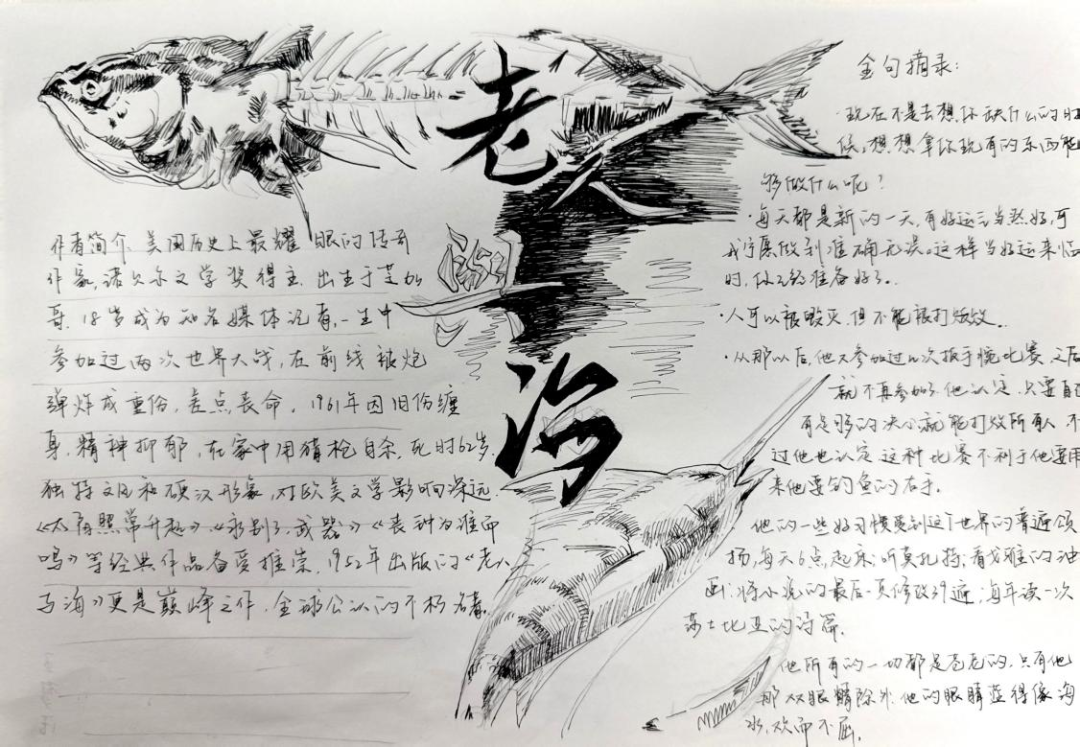 老人与海
作者简介 美国历史上最耀眼的传奇
作家,诺贝尔文学奖得主.出生于芝加
哥.18岁成为知名媒体记者,一生中
参加过两次世界大战,在前线被炮
弹炸成重伤,差点丧命.1961年因旧伤缠
身,精神抑郁,在家中用猎枪自杀.死时62岁.
独特文风和硬汉形象,对欧美文学影响深远.
《太阳照常升起》《永别了,武器》《丧钟为谁而
鸣》等经典作品备受推崇.1952年出版的《老人
与海》更是巅峰之作.全球公认的不朽名著.
金句摘录:
·现在不是去想你缺什么的时
候,想想拿你现有的东西能
够做什么呢?
·每天都是新的一天,有好运当然好,可
我宁愿做到准确无误。这样当好运来临
时,你已经准备好了。
·人可以被毁灭,但不能被打败。
·从那以后,他又参加过几次扳手腕比赛,之后
就不再参加了.他认定,只要自己
有足够的决心就能打败所有人 不
过他也认定这种比赛不利于他要用
来他要钓鱼的右手.
他的一些好习惯受到这个世界的普遍颂
扬,每天6点起床;听莫扎特;看戈雅的油
画;将小说的最后一页修改39遍;每年读一次
莎士比亚的
他所有的一切都是苍老的.只有他
那双眼睛除外.他的眼睛蓝得像海
水,欢而不屈.